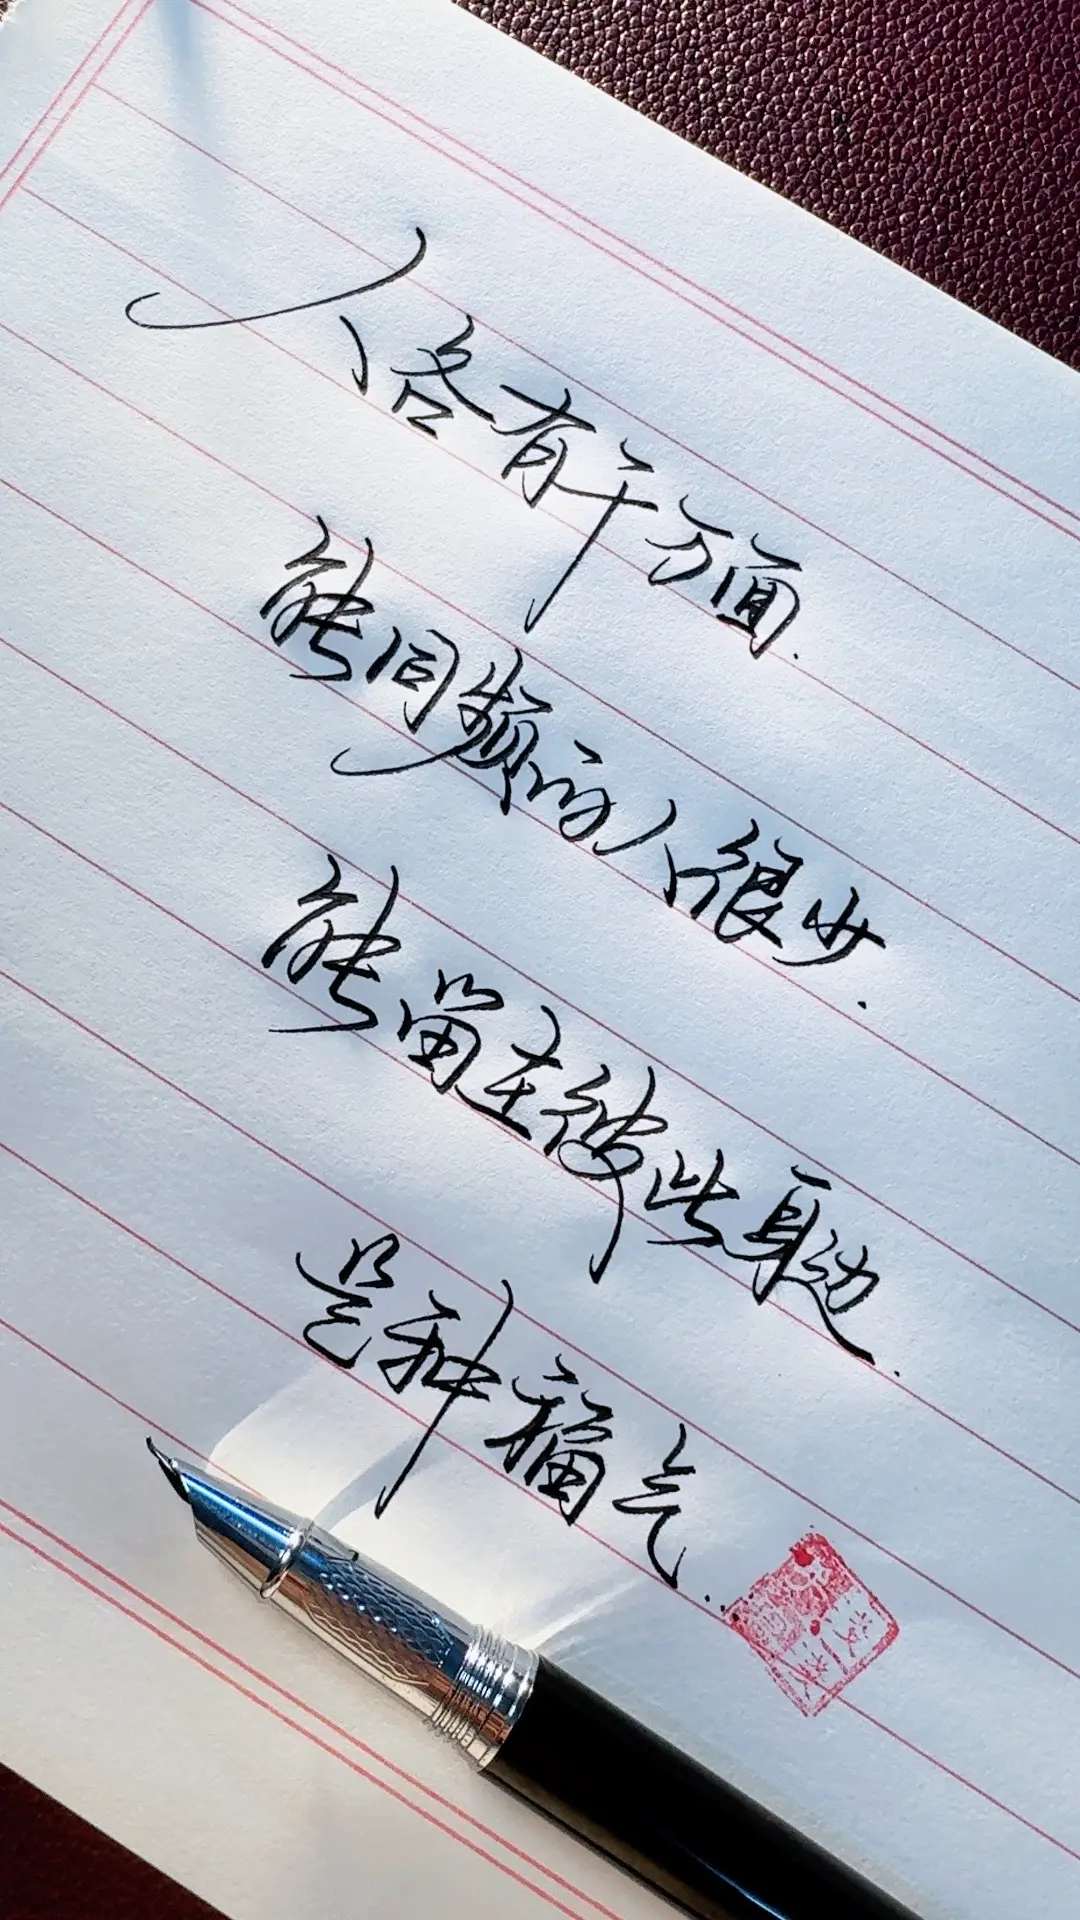 人各有千万面.
能同频的人很少.
能留在彼此身边.
是种福气..